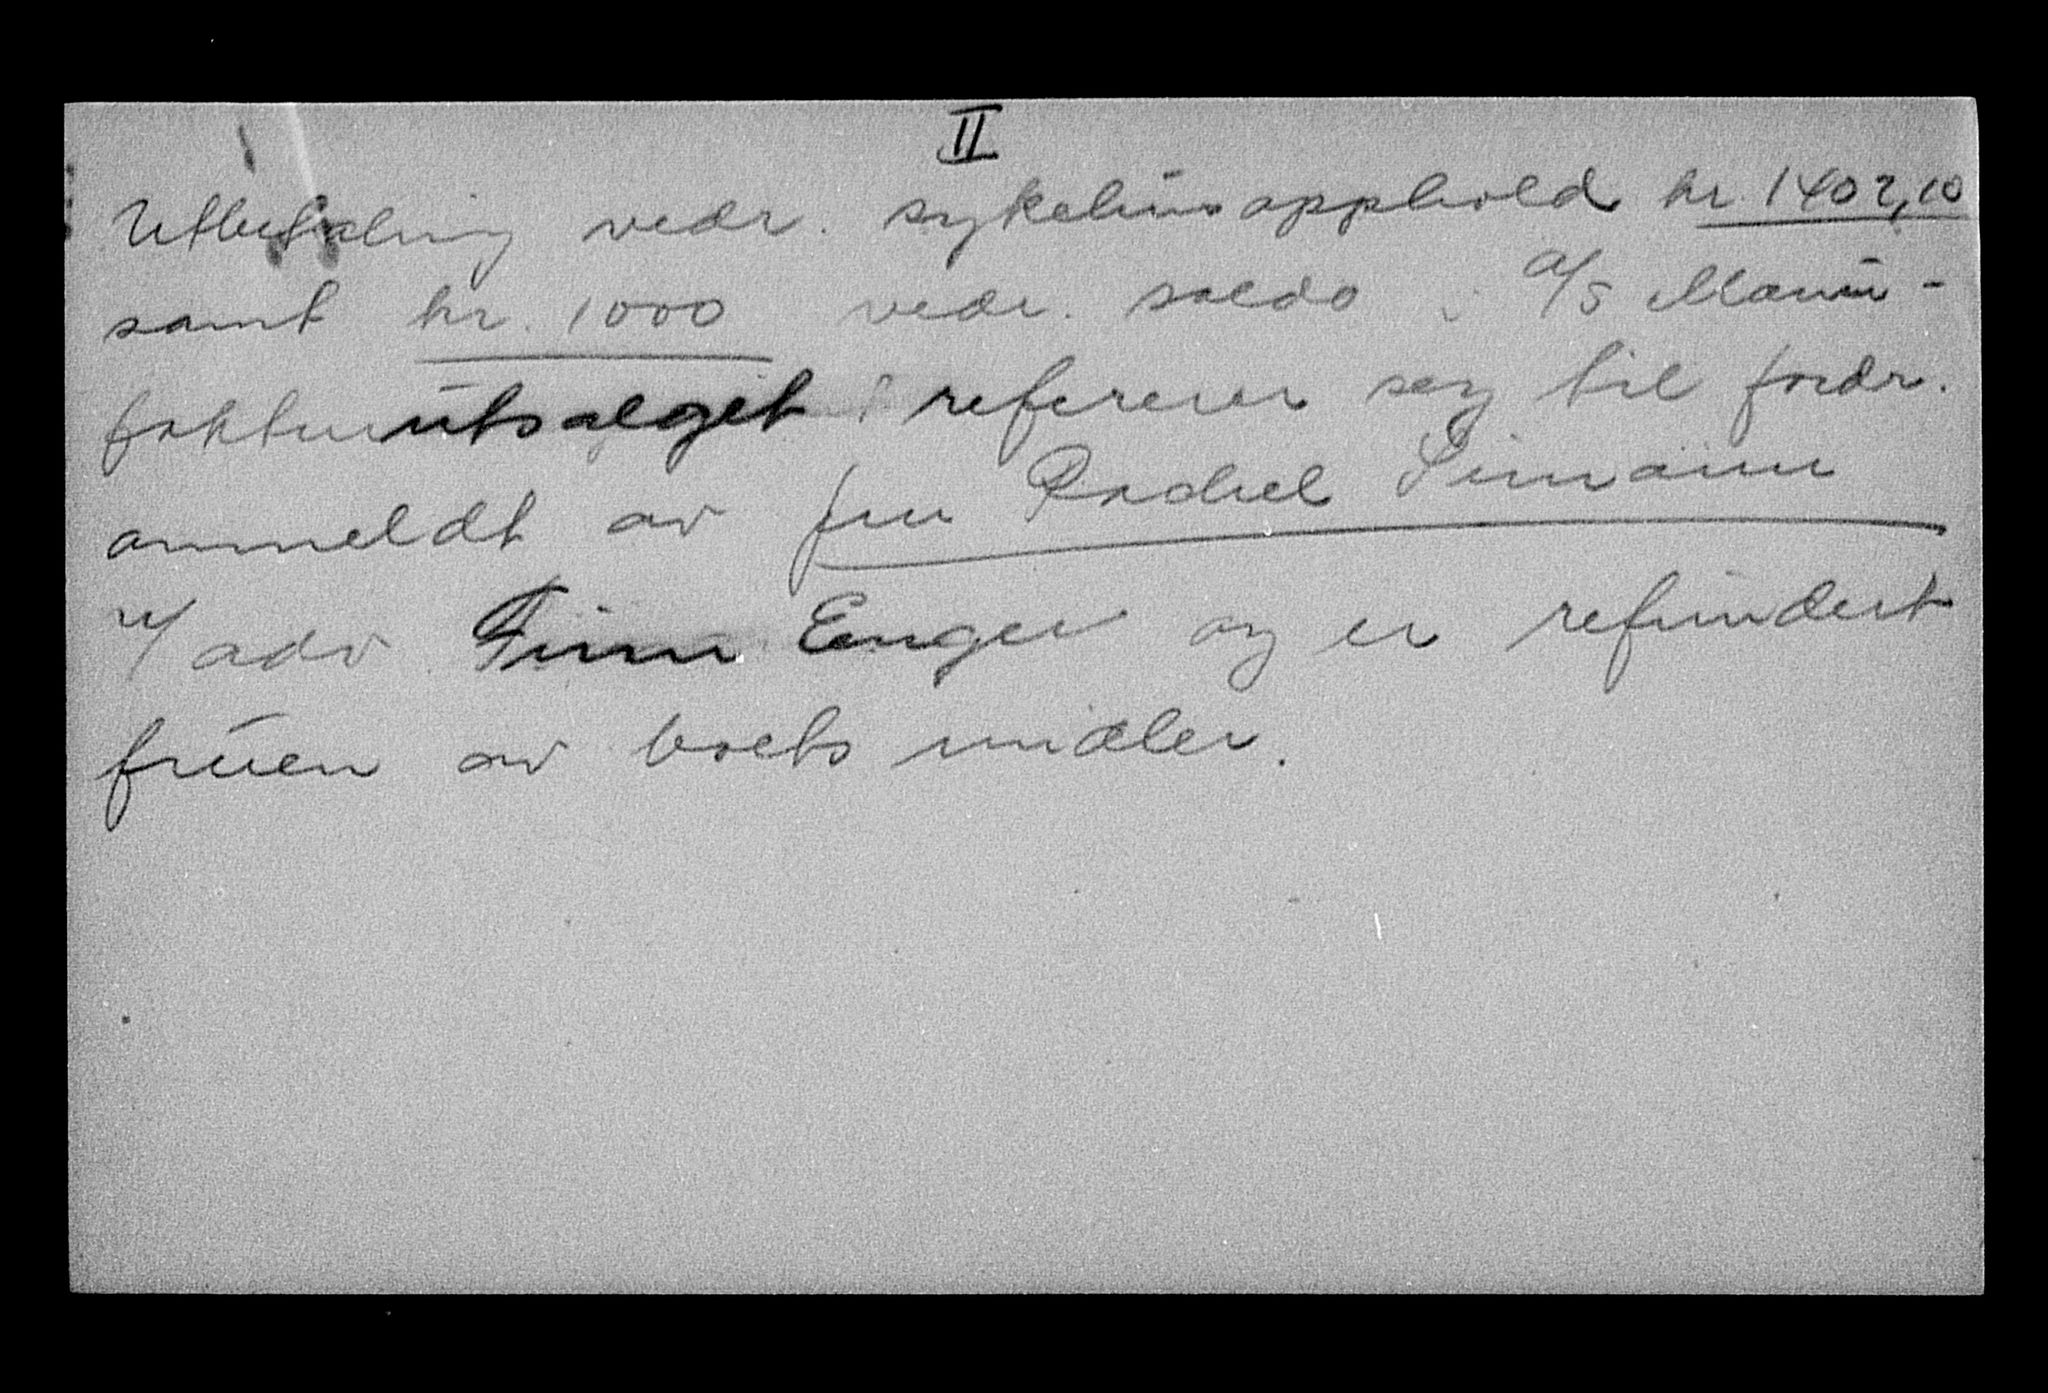 II
Utbetaling vedr. sykehusopphold kr. 1402,10
samt kr. 1000 vedr. saldo i A/S Manu-
fakturutsalget refererer seg til fordr.
anmeldt av fru Rachel Simann
v/ adv. Finn Enger og er refundert
fruen av boets midler.